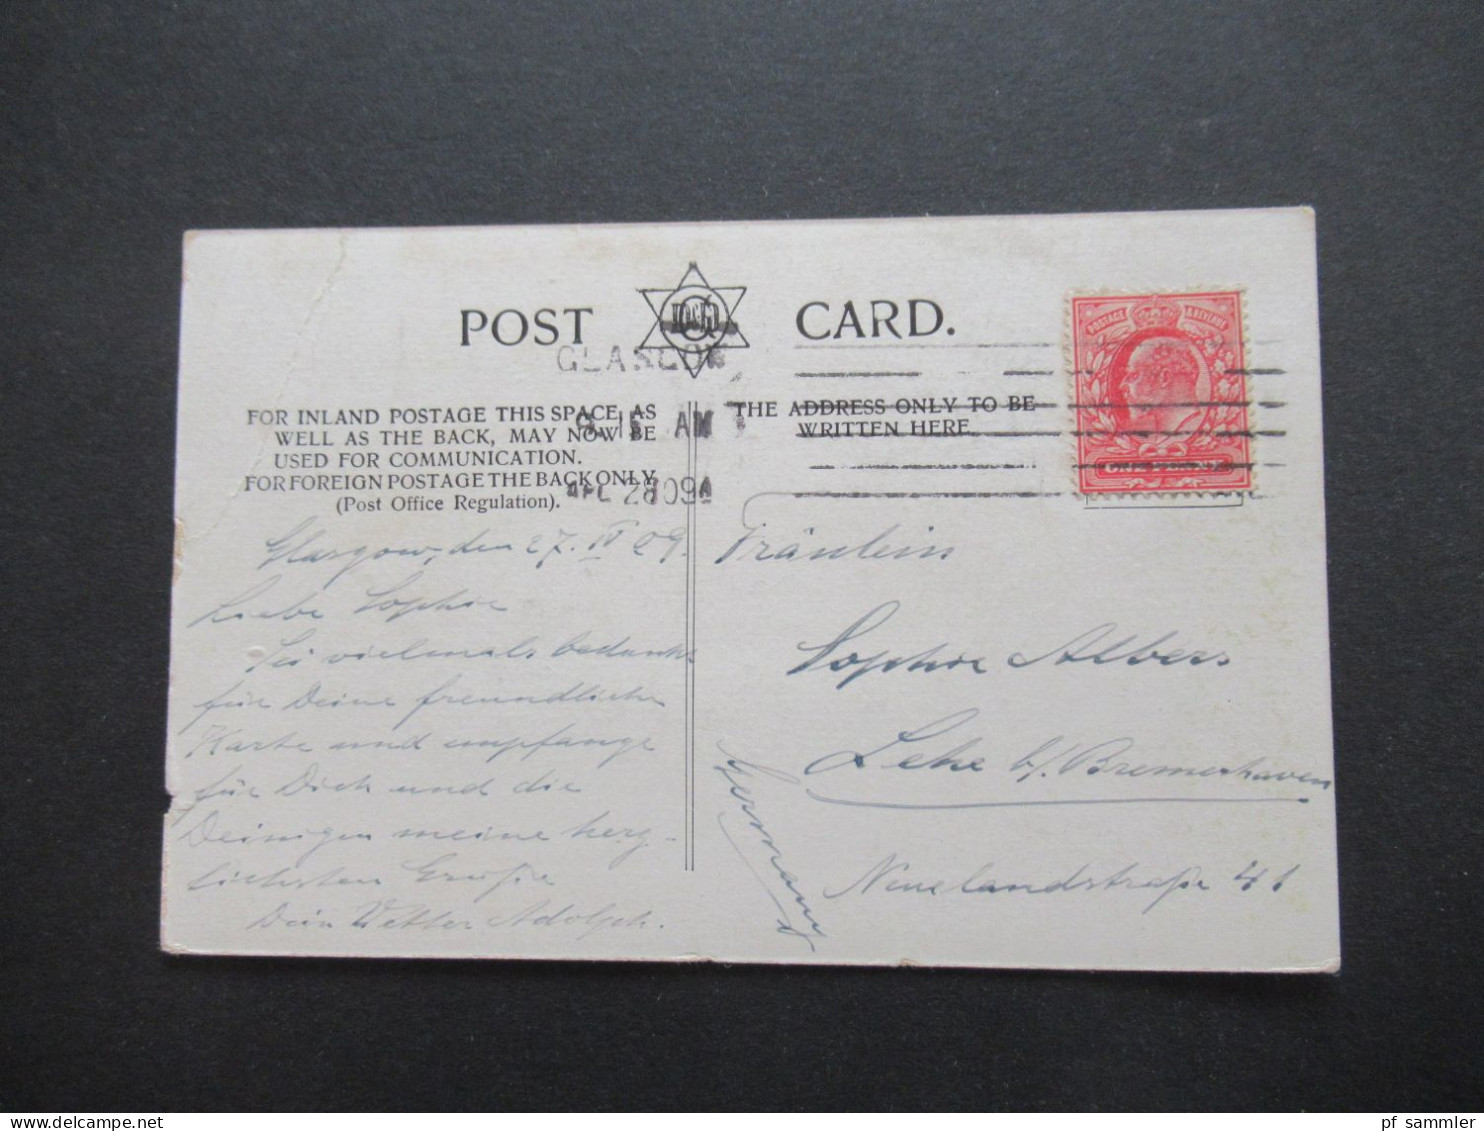 POST CARD.
GLASGOW
FOR INLAND POSTAGE THIS SPACE, AS
WELL AS THE BACK, MAY NOW BE
USED FOR COMMUNICATION.
FOR FOREIGN POSTAGE THE BACK ONLY.
(Post Office Regulation).
THE ADDRESS ONLY TO BE
WRITTEN HERE
AM
28 09
POSTAGE & REVENUE
ONE PENNY
Glasgow, den 27. IV 09.
Liebe Sophie
Sei vielmals bedankt
für Deine freundliche
Karte und empfange
für Dich und die
Deinigen meine herz-
lichsten Grüße
Dein Vetter Adolph.
Fräulein
Sophie Albers
Lehe b/ Bremerhaven
Neuelandstraße 41
Germany
pf_sammler